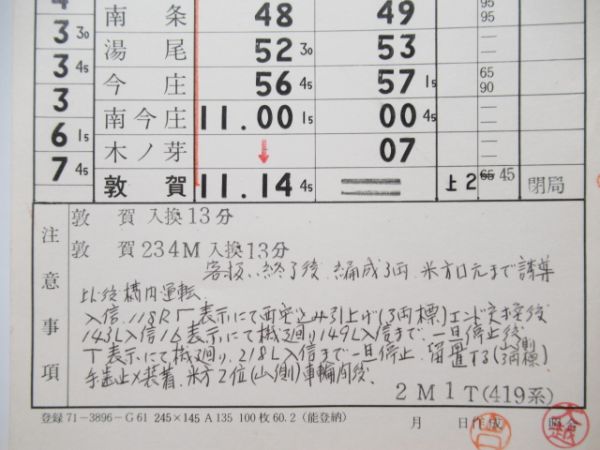 4 南条 48 49 95 95
3 30 湯尾 52 30 53
3 45 今庄 56 45 57 15 65 90
3 南今庄 11.00 15 00 45
6 15 木ノ芽 ↓ 07
7 45 敦賀 11.14 45 上2 65 45 閉局
注意事項
敦賀 入換13分
敦賀 234M 入換13分
客扱い終了後、編成3両、米方口元まで誘導
比后構内運転.
表示にて 引上げ(3両標)エンド交換後
143L入信 表示にて機3回り149L入信まで、一旦停止後
表示にて機3回り、218L入信まで一旦停止、留置する(3両標)
手歯止メ装着、米方2位(山側)車輪 后、
2M1T(419系)
登録71-3896-G61 245×145 A135 100枚 60.2 (能登納) 月 日作成